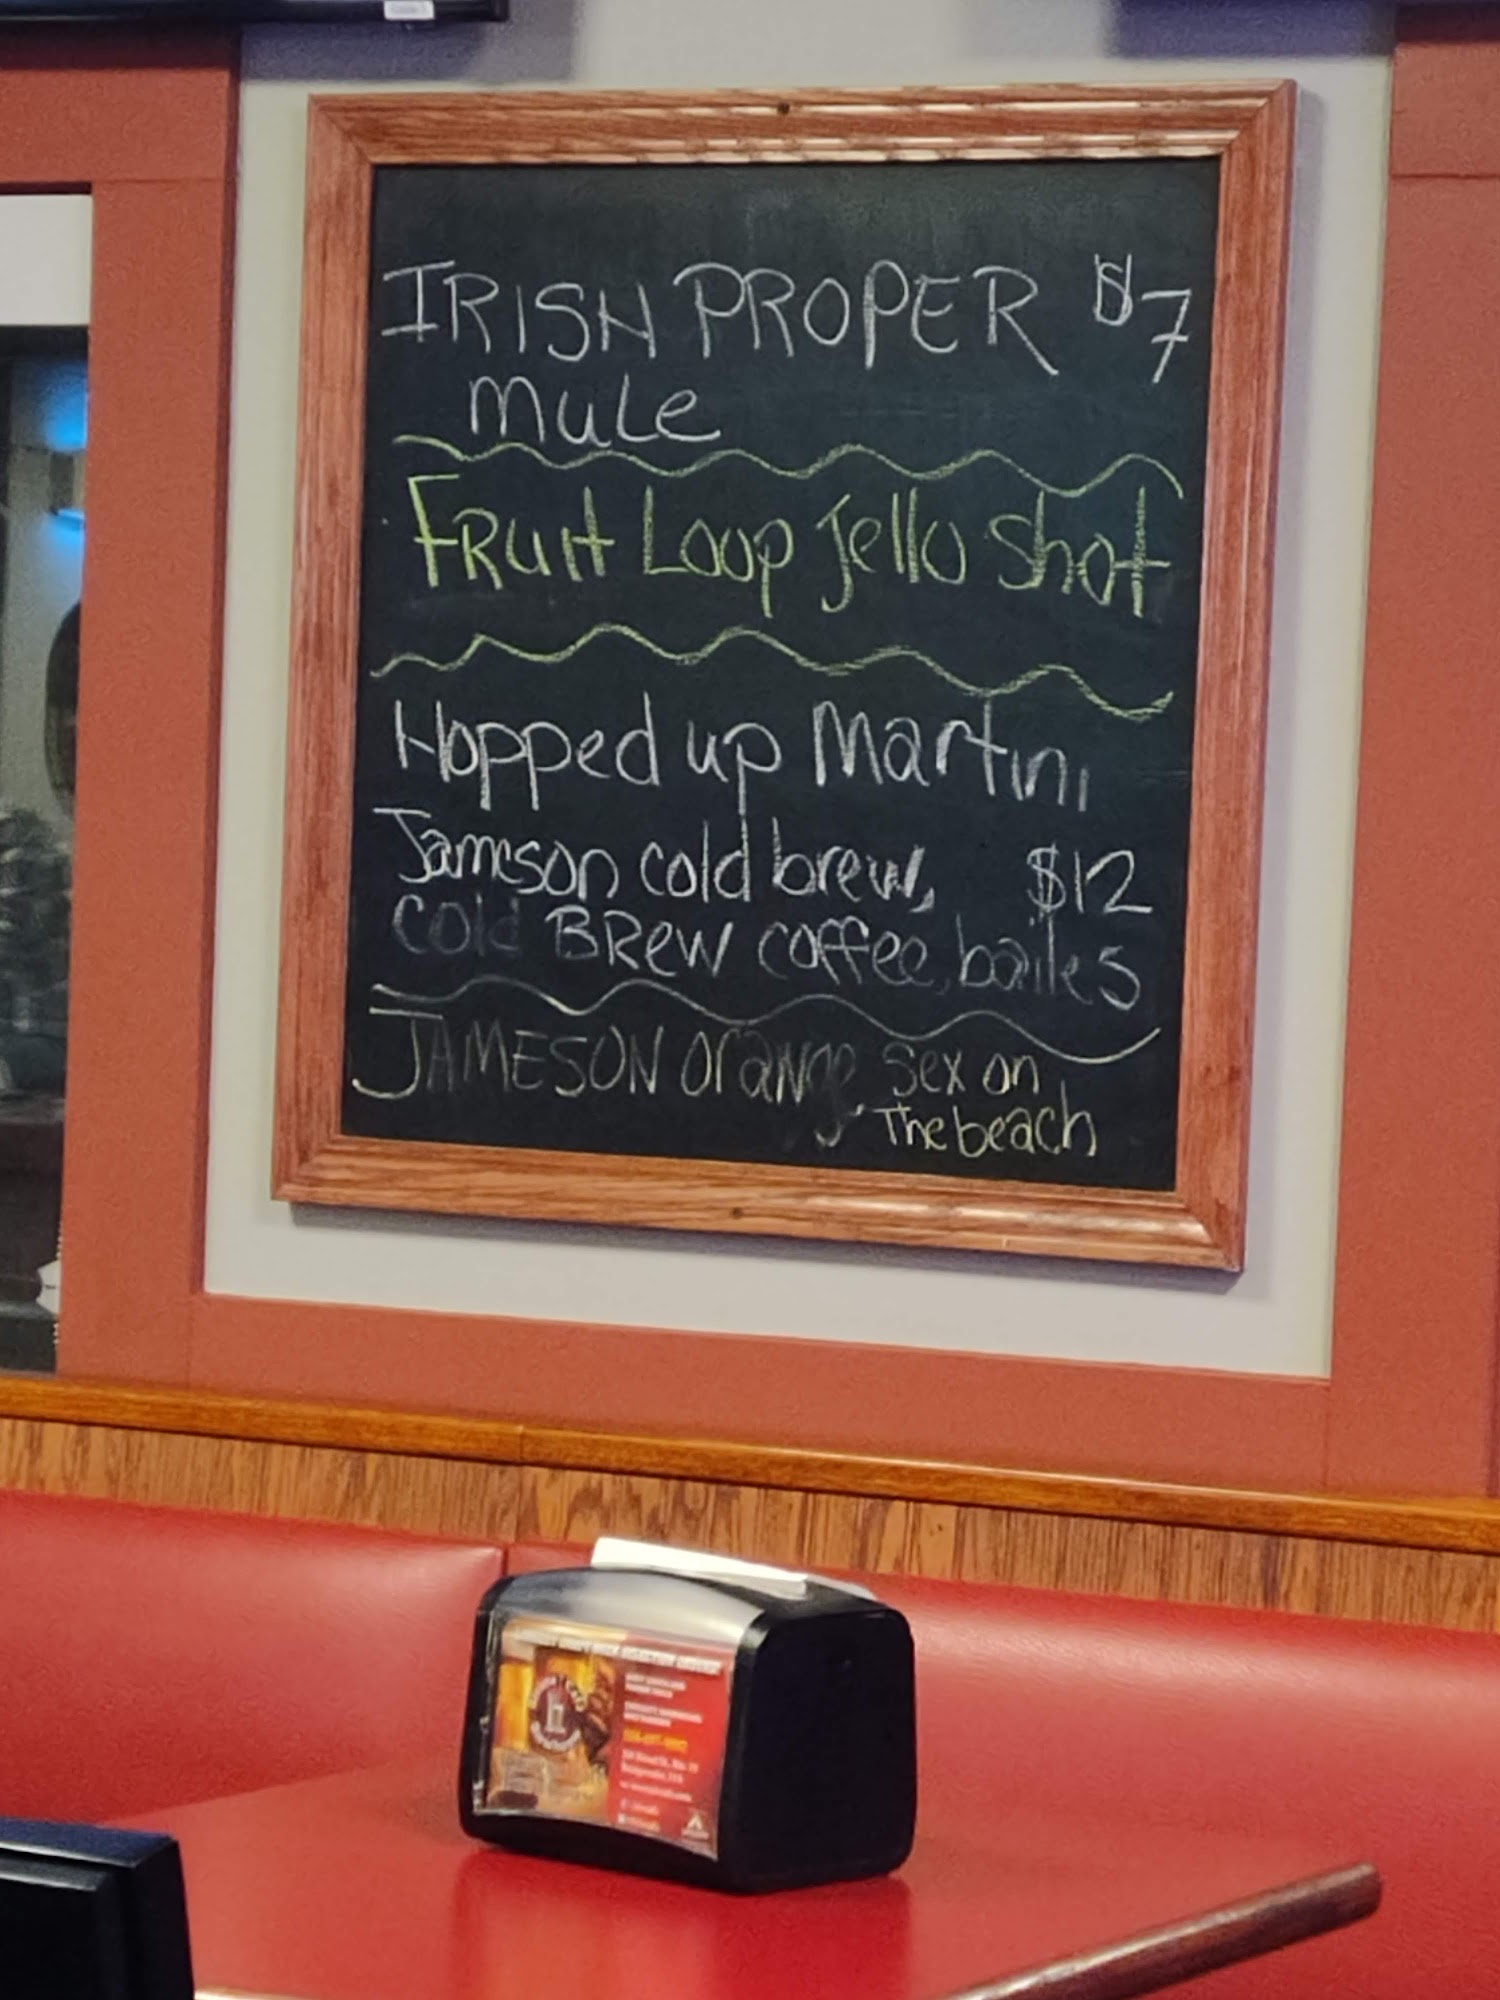 IRISH PROPER $7
MULE
FRuit Loop Jello Shot
Hopped up Martini
Jameson cold brew, $12
cold BREW coffee, bailes
JAMESON orange, sex on
The beach